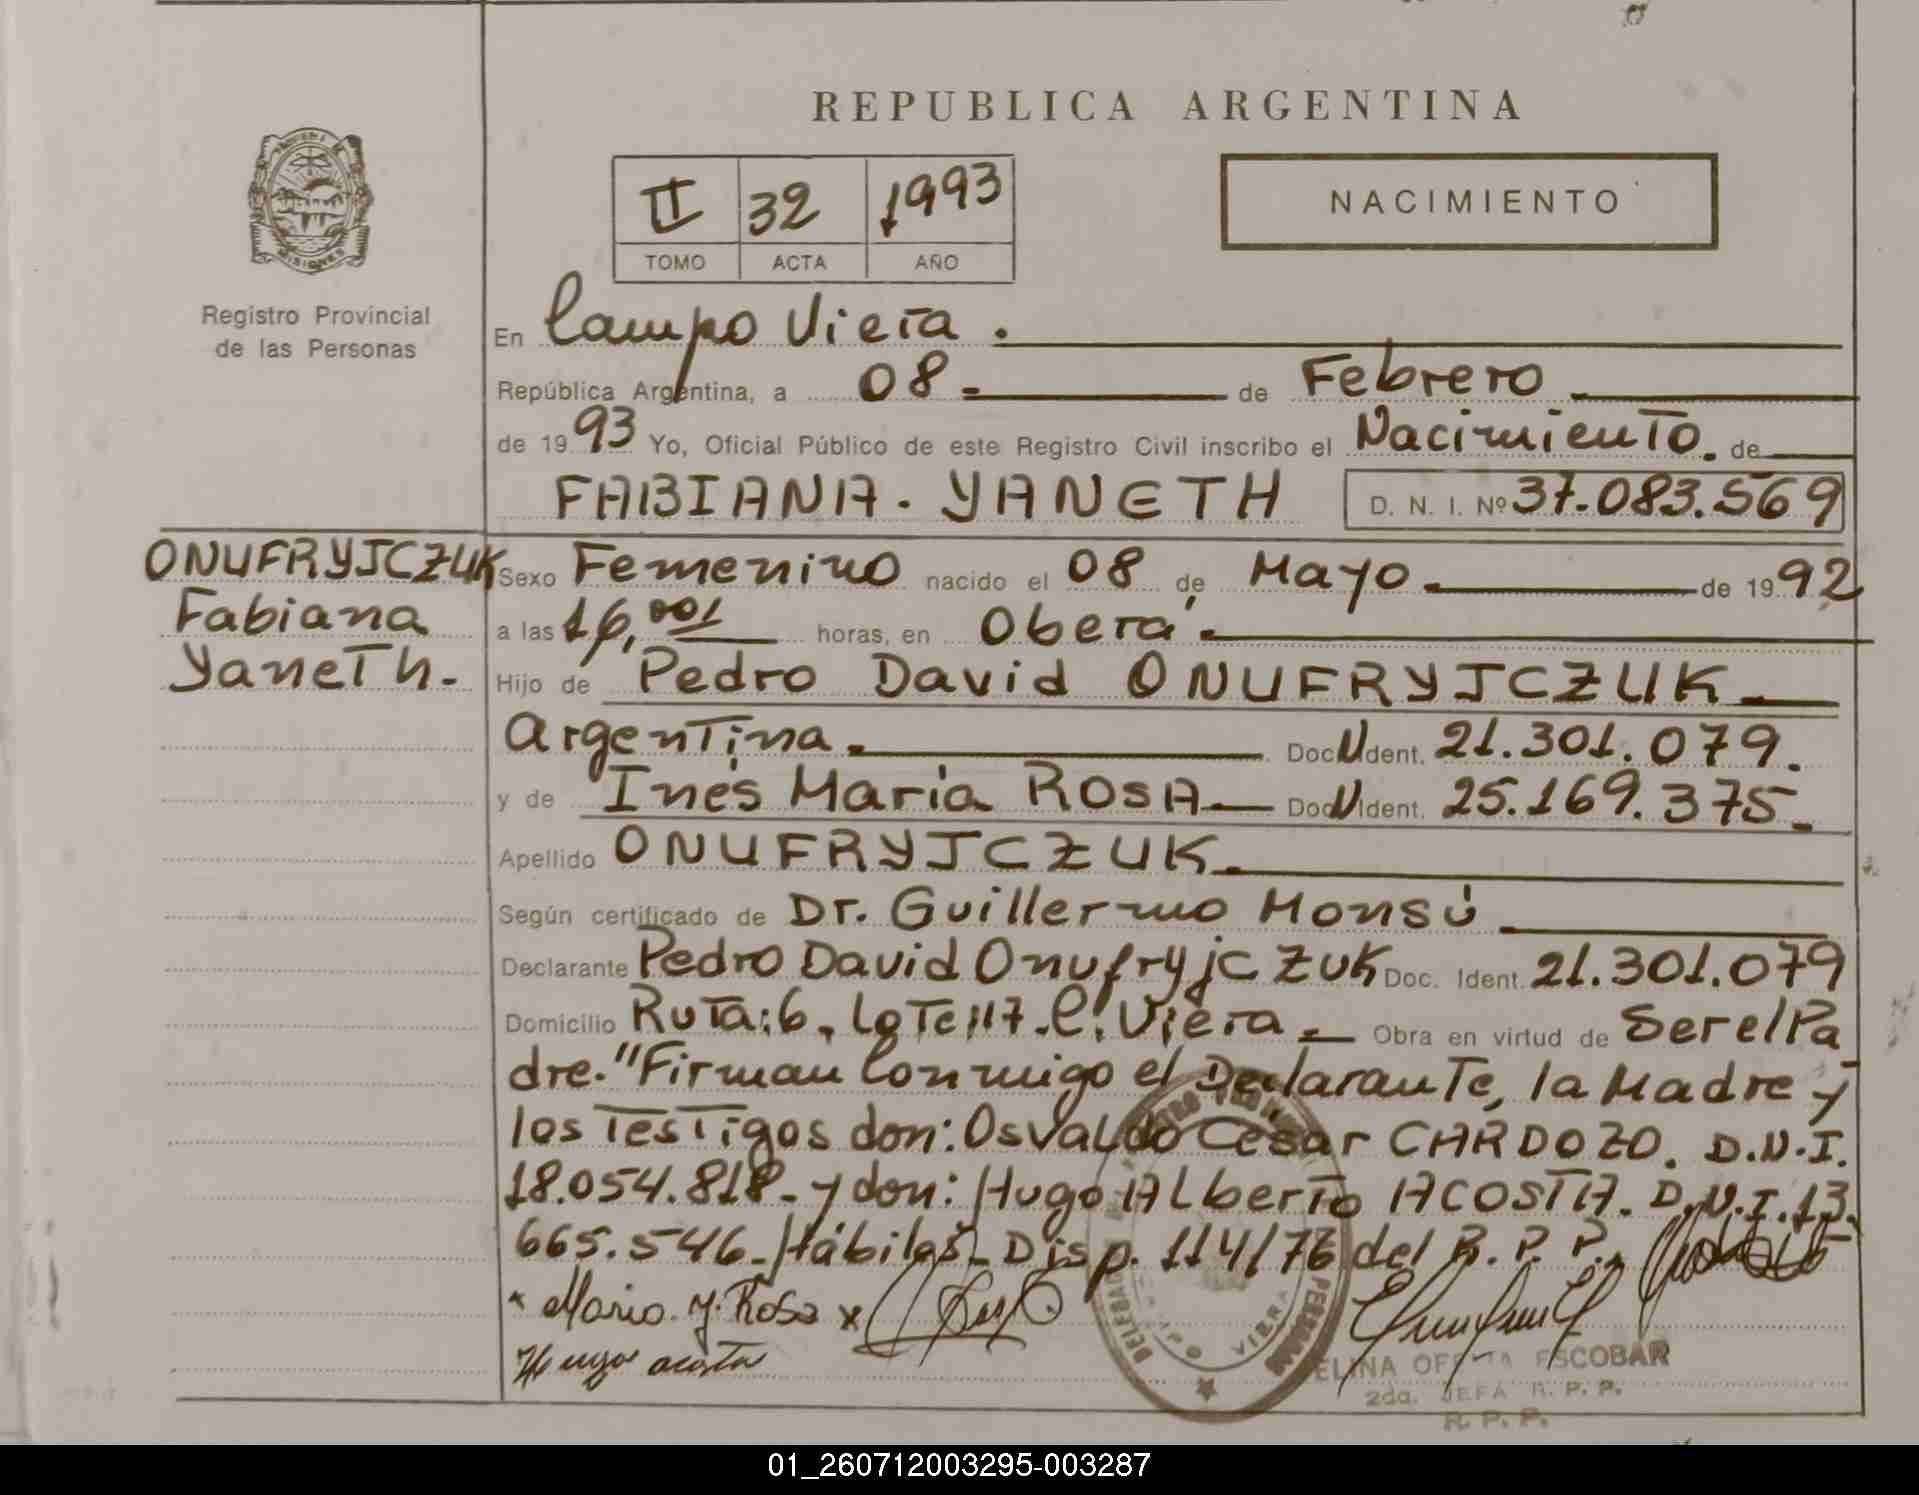 REPUBLICA ARGENTINA
II 32 1993
TOMO ACTA AÑO
NACIMIENTO
MISIONES
Registro Provincial
de las Personas
En Campo Viera.
República Argentina, a 08 - de Febrero
de 1993 Yo, Oficial Público de este Registro Civil inscribo el Nacimiento. de
FABIANA. YANETH D. N. I. Nº 37.083.569
ONUFRYJCZUK
Fabiana
Yaneth.-
Sexo Femenino nacido el 08 de Mayo. de 1992
a las 16,00 horas, en Oberá.
Hijo de Pedro David ONUFRYJCZUK.
Argentina. Doc. Ident. 21.301.079.
y de Inés María ROSA Doc. Ident. 25.169.375.
Apellido ONUFRYJCZUK.
Según certificado de Dr. Guillermo Monsú
Declarante Pedro David Onufryjczuk Doc. Ident. 21.301.079
Domicilio Ruta:6. Lote:117. C. Viera. Obra en virtud de Ser el Pa
dre. "Firman Conmigo el Declarante, la Madre y
los Testigos don: Osvaldo Cesar CARDOZO. D.N.I.
18.054.818- y don: Hugo Alberto ACOSTA. D.N.I. 13.
665.546- Hábiles- Disp. 114/76 del R. P. P.
Hugo acosta
VIERA
ESCOBAR
2da. JEFA R. P. P.
R. P. P.
01_260712003295-003287